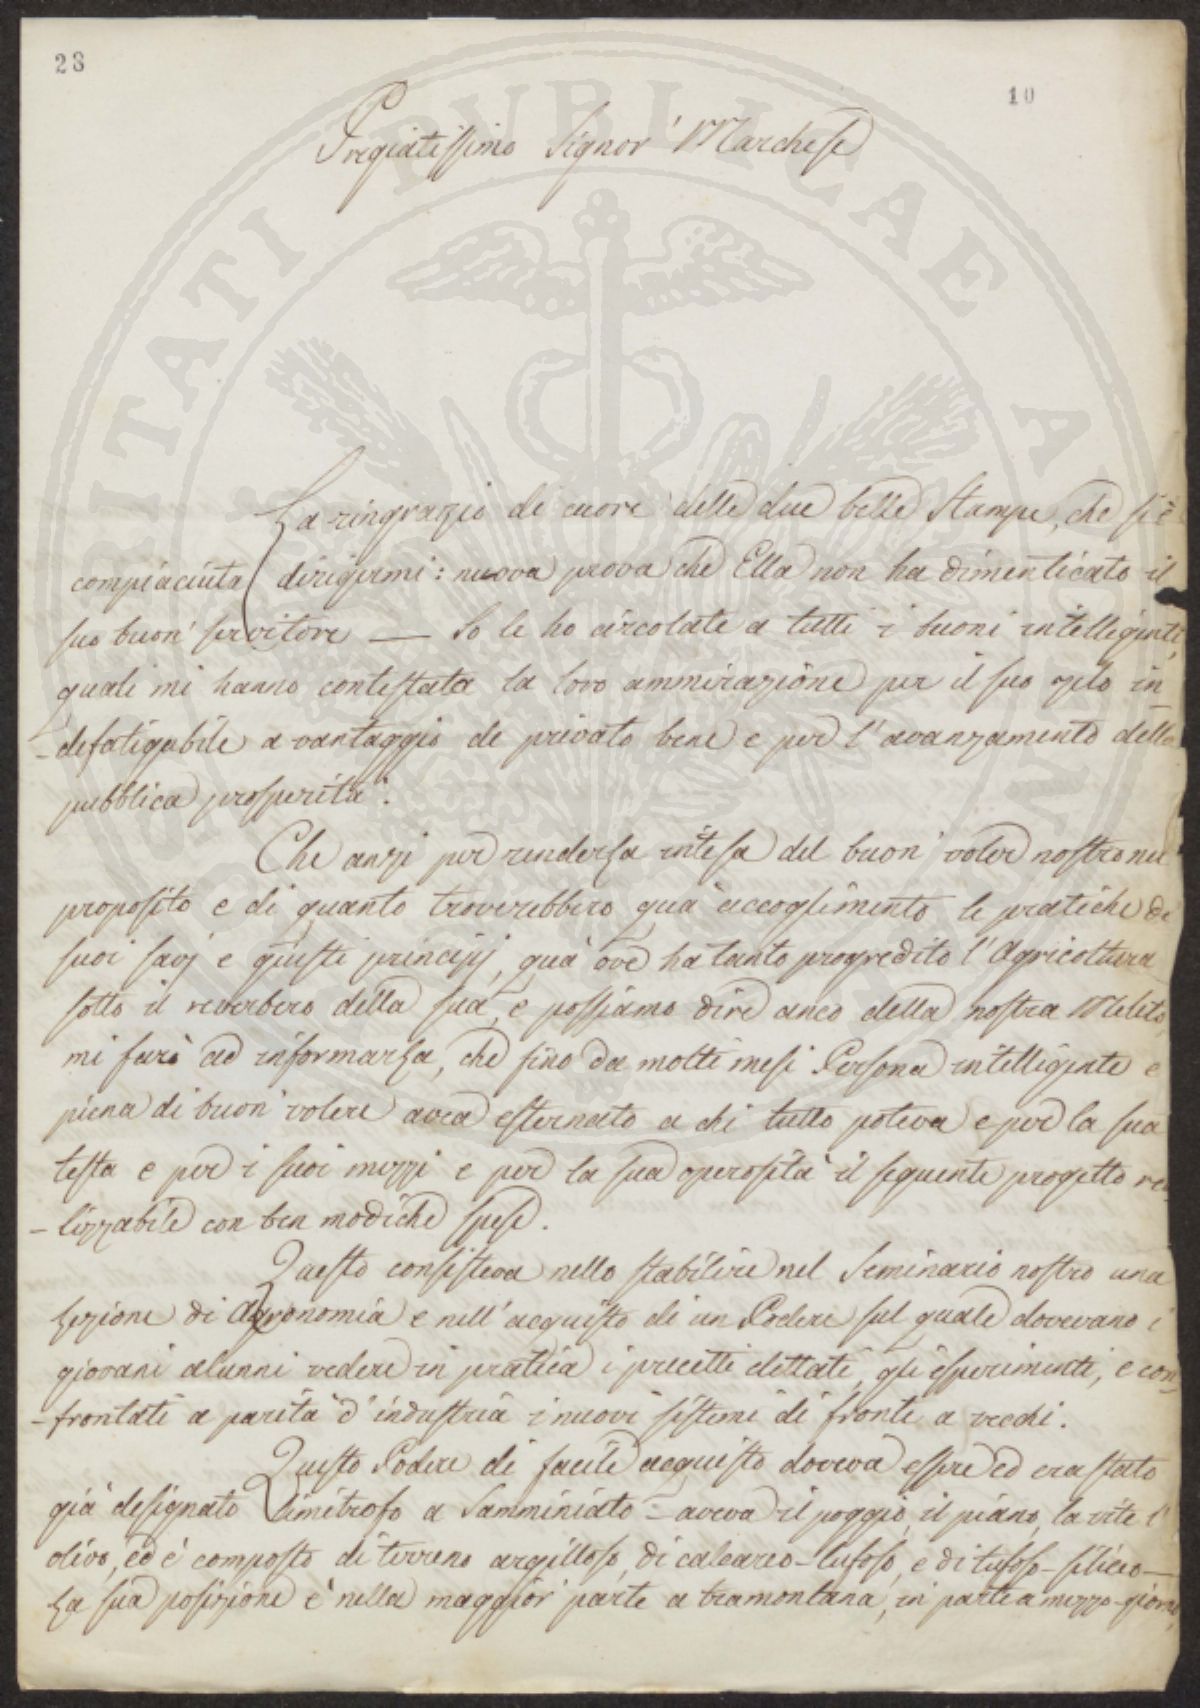 28
10
Pregiatissimo Signor' Marchese
La ringrazio di cuore delle due belle stampe, che si è
compiaciuta dirigermi: nuova prova che Ella non ha dimenticato il
suo buon' servitore — Io le ho circolate a tutti i buoni intelligenti,
quali mi hanno contestata la loro ammirazione per il suo zelo in
-defatigabile a vantaggio de privato bene e per l'avanzamento della
pubblica prosperità.
Che anzi per renderLa intesa del buon' voler nostro nel
proposito e di quanto troverebbero quà accoglimento le pratiche de
suoi savj e giusti principj, quà ove ha tanto progredito l'Agricoltura
sotto il reverbero della sua, e possiamo dire anco della nostra Meleto,
mi farò ad informarLa, che fino da molti mesi Persona intelligente e
piena di buon' volere avea esternato a chi tutto poteva e per la sua
testa e per i suoi mezzi e per la sua operosità il seguente progetto rea
-lizzabile con ben modiche spese.
Questo consisteva nello stabilire nel Seminario nostro una
Lezione di Agronomia e nell'acquisto di un Podere sul quale dovevano i
giovani alunni vedere in pratica i precetti dettati, gli esperimenti, e con
-frontati a parità d'industria i nuovi sistemi di fronte a vecchi.
Questo Podere di facile acquisto doveva essere ed era stato
già designato Limitrofo a Samminiato - aveva il poggio, il piano, la vite l'
olivo, ed è composto di terreno argilloso, di calcareo-tufoso, e di tufoso-siliceo —
La sua posizione è nella maggior' parte a tramontana, in parte a mezzo-giorno,
PVBLICAE